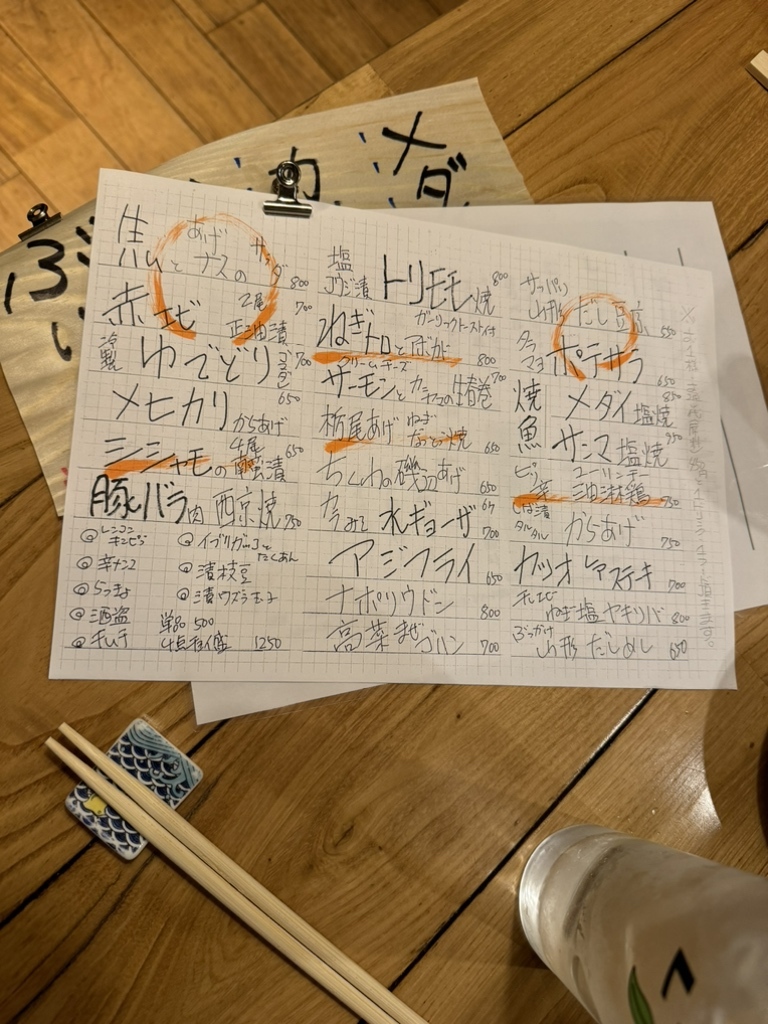 メダ
ふ
あげ
とナスのサラダ 800
赤エビ 2尾 正油漬 700
冷製 ゆでどり ゴマダレ 700
メヒカリからあげ 650
シシャモの南蛮漬 4尾 650
豚バラ肉西京焼 750
◎レンコンキンピラ
◎辛ナンコツ
◎らっきょ
◎酒盗
◎キムチ
◎イブリガッコとたくあん
◎漬枝豆
◎漬ウズラ玉子
単品 500
4点盛 1250
塩コウジ漬 トリモモ焼 800
ガーリックトースト付
ねぎトロとアボカド 800
クリームチーズ
サーモンとの生春巻 700
栃尾あげ ねぎなっとう焼 650
ちくわの磯辺あげ 650
水ギョーザ 6ケ 700
アジフライ 650
ナポリウドン 800
高菜まぜゴハン 700
サッパリ山形だし豆腐 550
タラマヨポテサラ 650
焼魚
メダイ塩焼 850
サンマ塩焼 950
ピリ辛 ユーリンチー 油淋鶏 750
しば漬タルタル からあげ 750
カツオレアステキ 700
ねぎ塩ヤキソバ 800
ぶっかけ山形だしめし 650